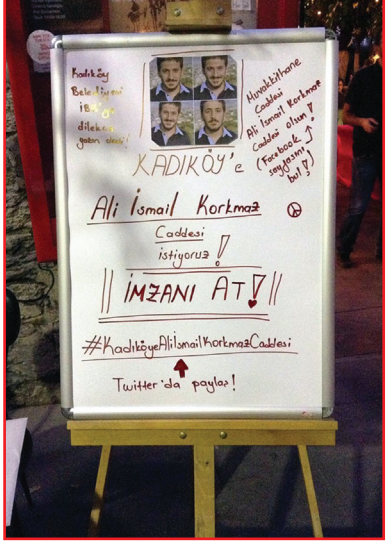 Kadıköy
Belediyesi
dilekçe
yazın dedi!
Muvakkithane
Caddesi
Ali İsmail Korkmaz
Caddesi olsun!
(Facebook ↑
sayfasını
bul!)
KADIKÖY'e
Ali İsmail Korkmaz
Caddesi
istiyoruz!
|| İMZANI AT! ||
#KadıköyeAliİsmailKorkmazCaddesi
Twitter'da paylaş!